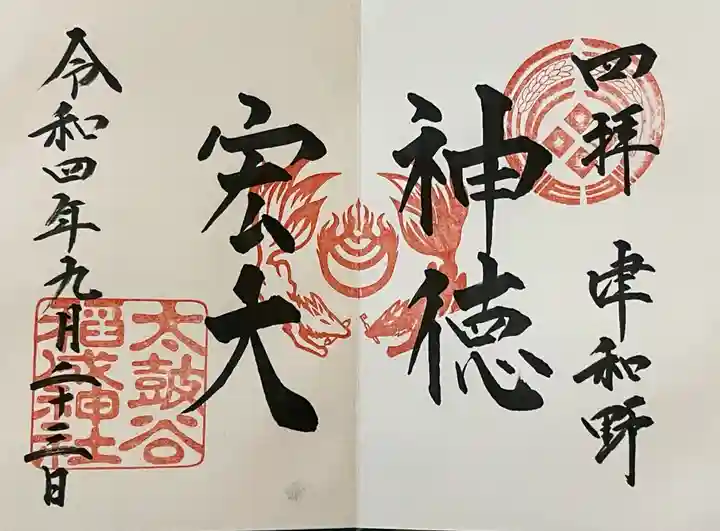 四拝 津和野
神徳
宏大
令和四年九月二十三日
太鼓谷
稲成神社